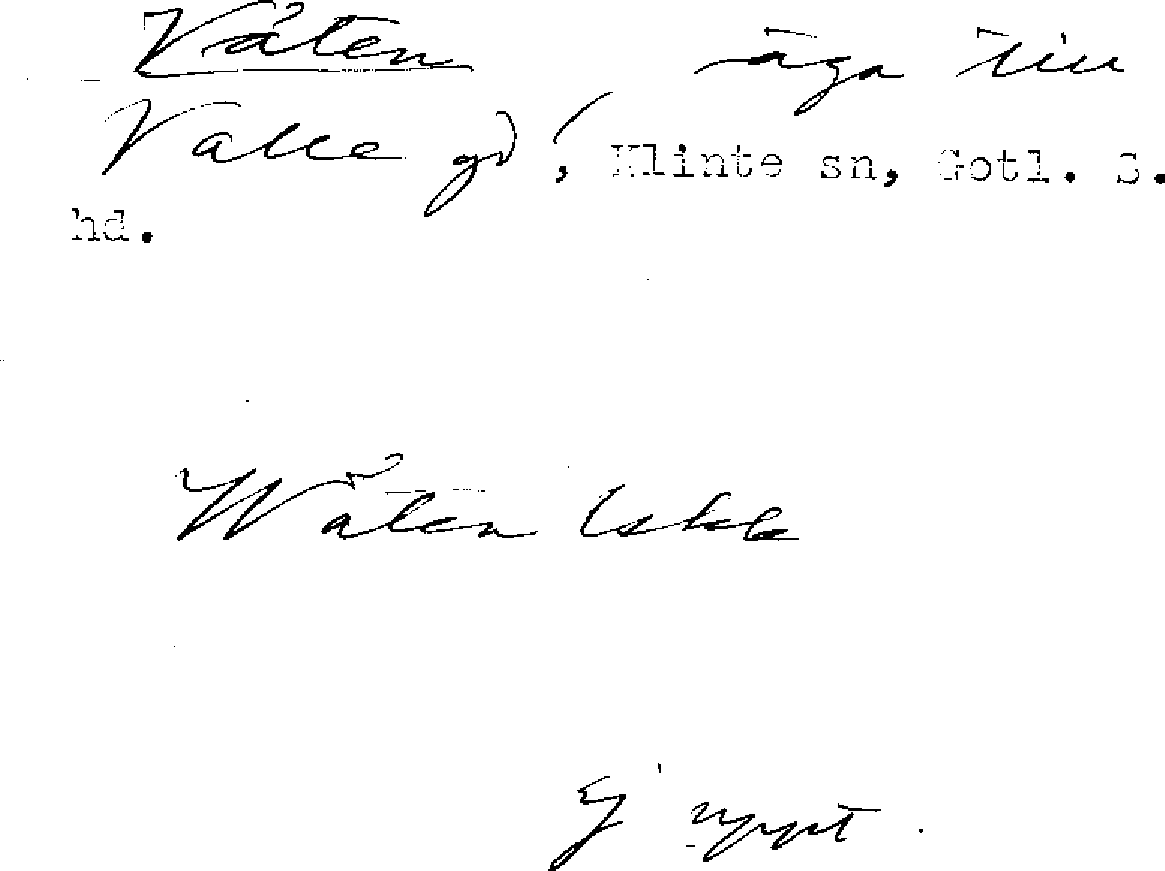 Våten äga till
Valle gd, Klinte sn, Gotl. S.
hd.
Wåten Iskk
Ej uppt.